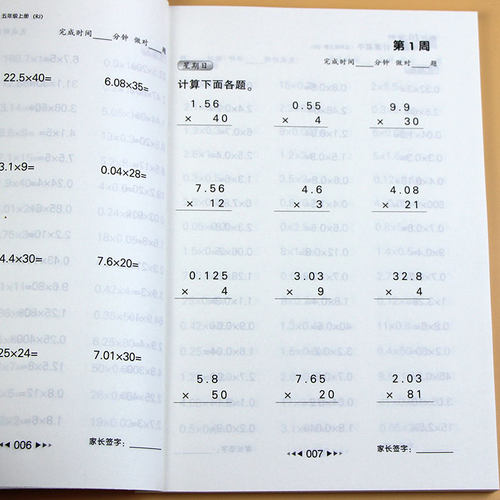 五年级上册 (RJ)
完成时间____分钟 做对____题
22.5×40= 6.08×35=
3.1×9= 0.04×28=
4.4×30= 7.6×20=
25×24= 7.01×30=
006 家长签字：
第1周
完成时间____分钟 做对____题
星期日
计算下面各题。
1.56 0.55 9.9
× 40 × 4 × 30
7.56 4.6 4.08
× 12 × 3 × 21
0.125 3.03 32.8
× 4 × 9 × 4
5.8 7.65 2.03
× 50 × 20 × 81
007 家长签字：